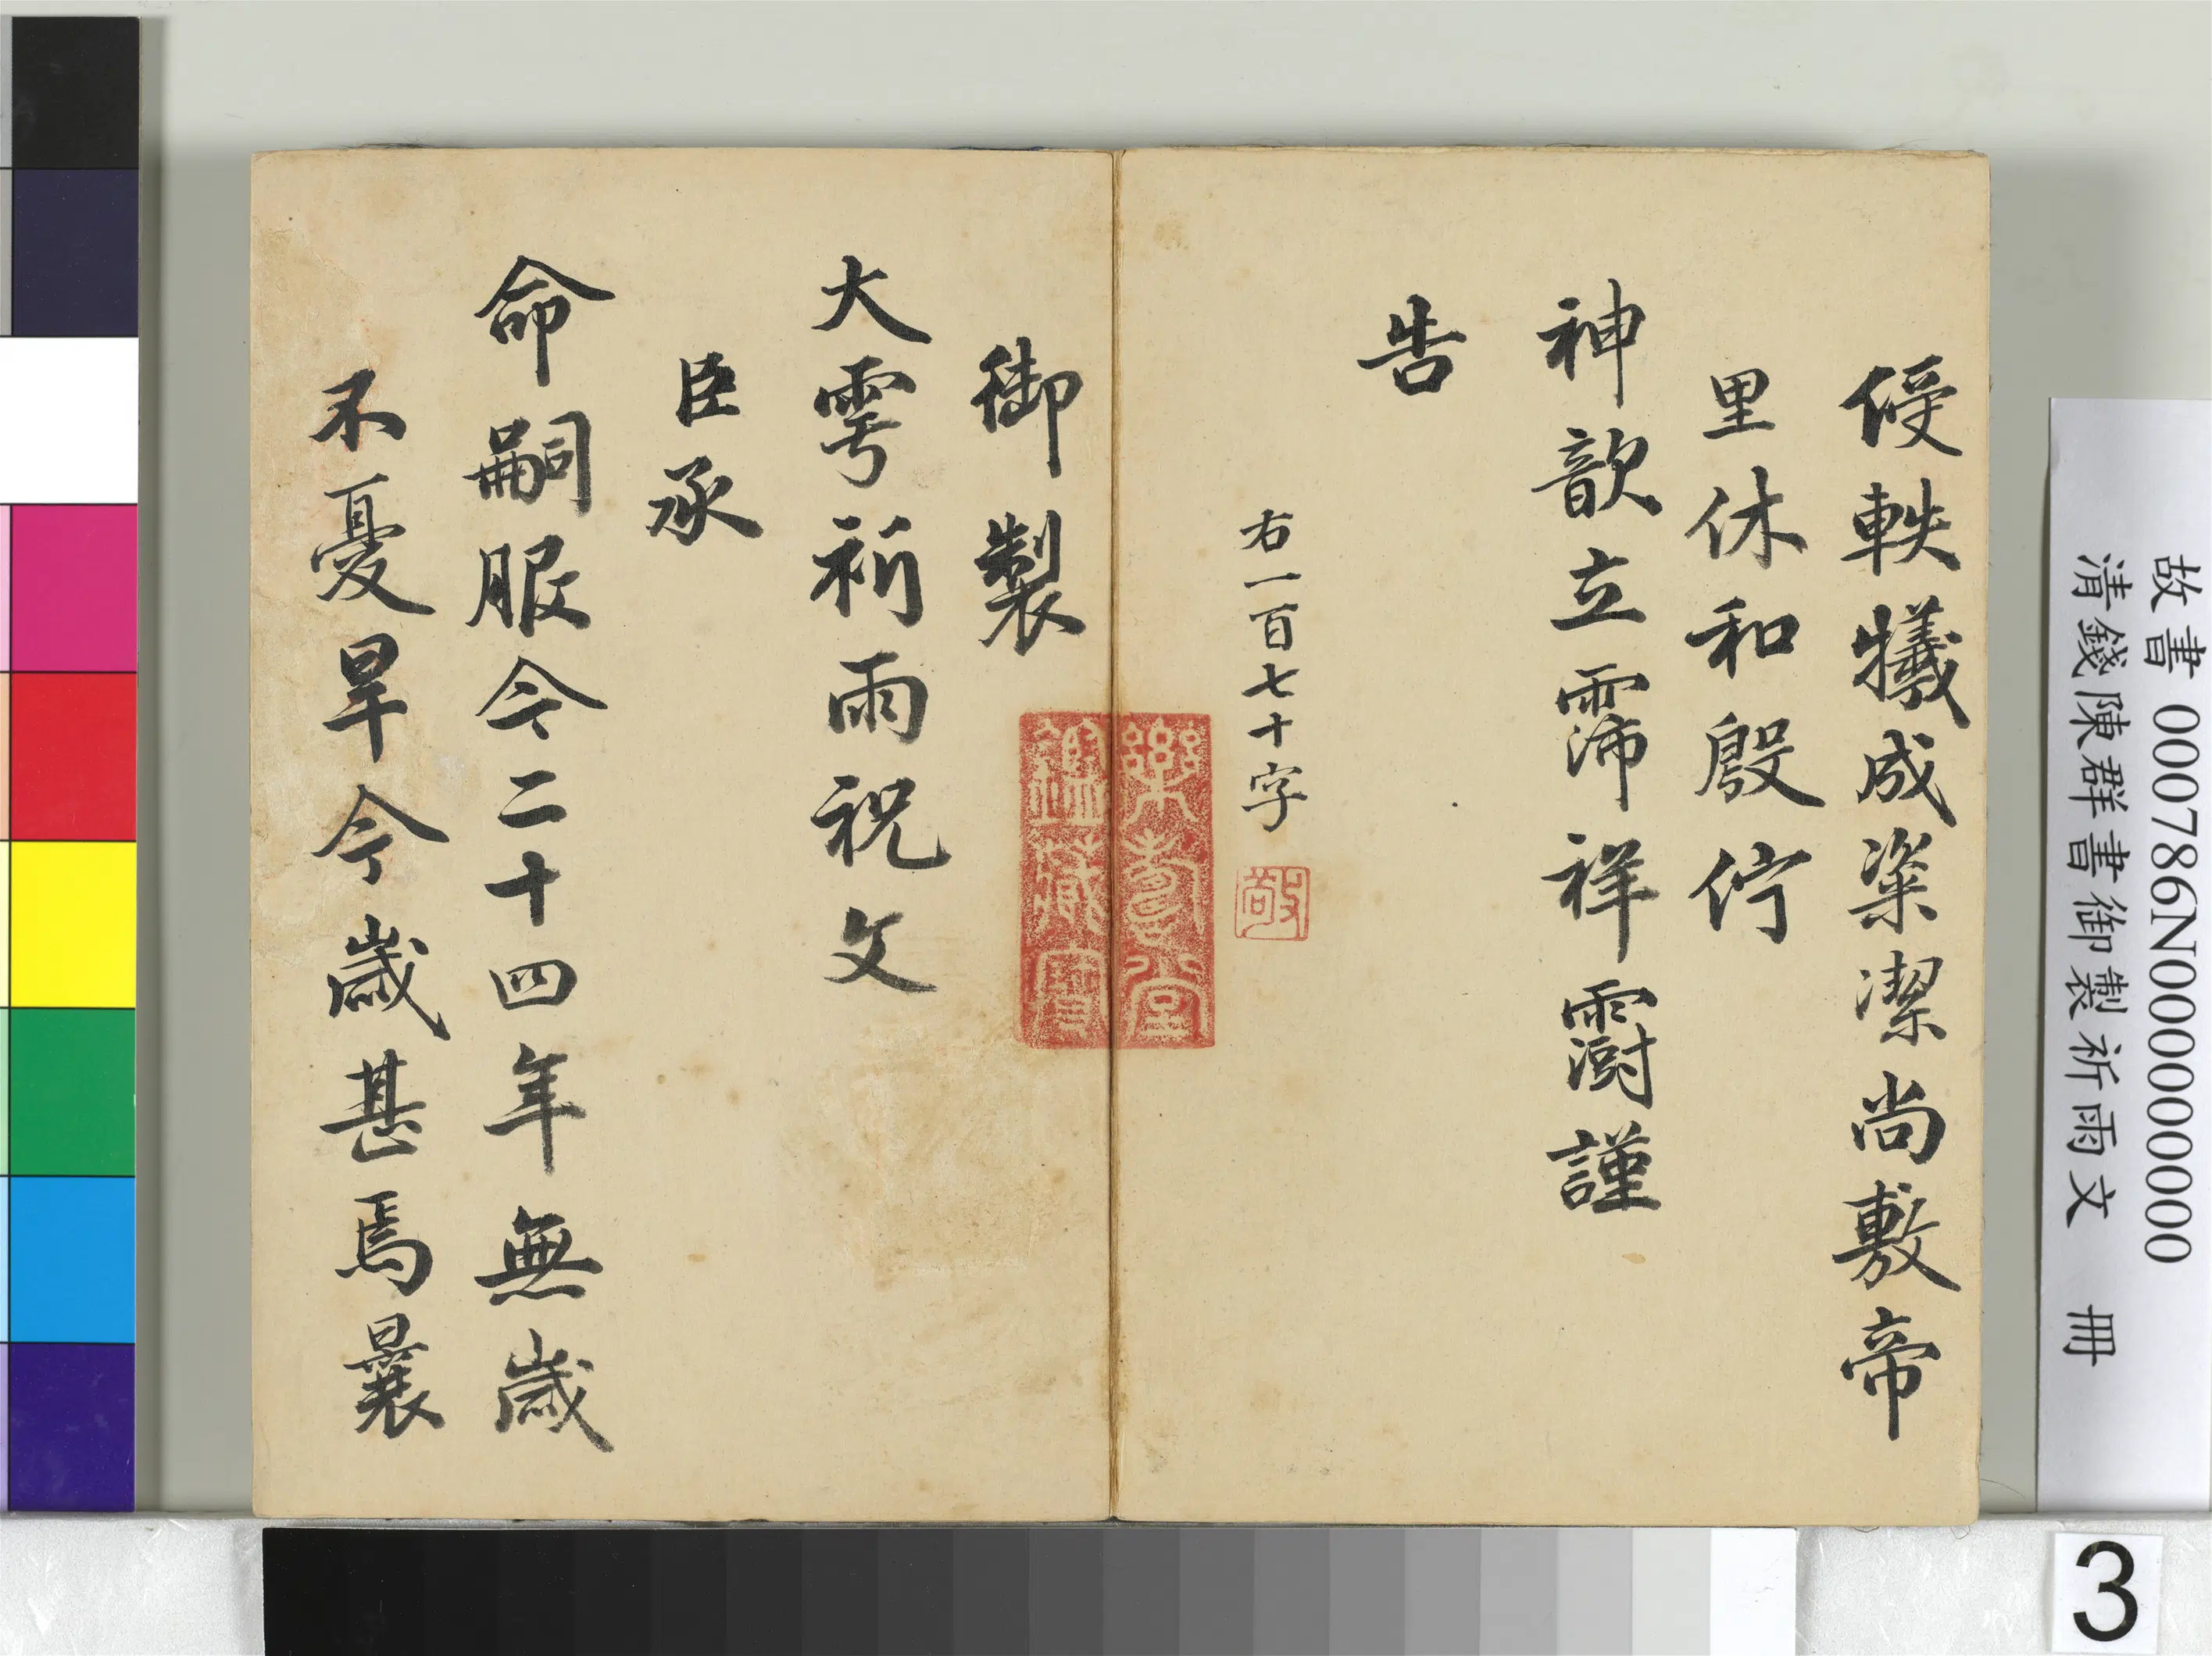 故書 000786N000000000
清錢陳群書御製祈雨文 冊
3
優軼犧成粢潔尚敷帝
里休和殷佇
神歆立霈祥霨謹
告
右一百七十字
樂壽堂
鑑藏寶
御製
大雩祈雨祝文
臣承
命嗣服今二十四年無歲
不憂旱今歲甚焉曩